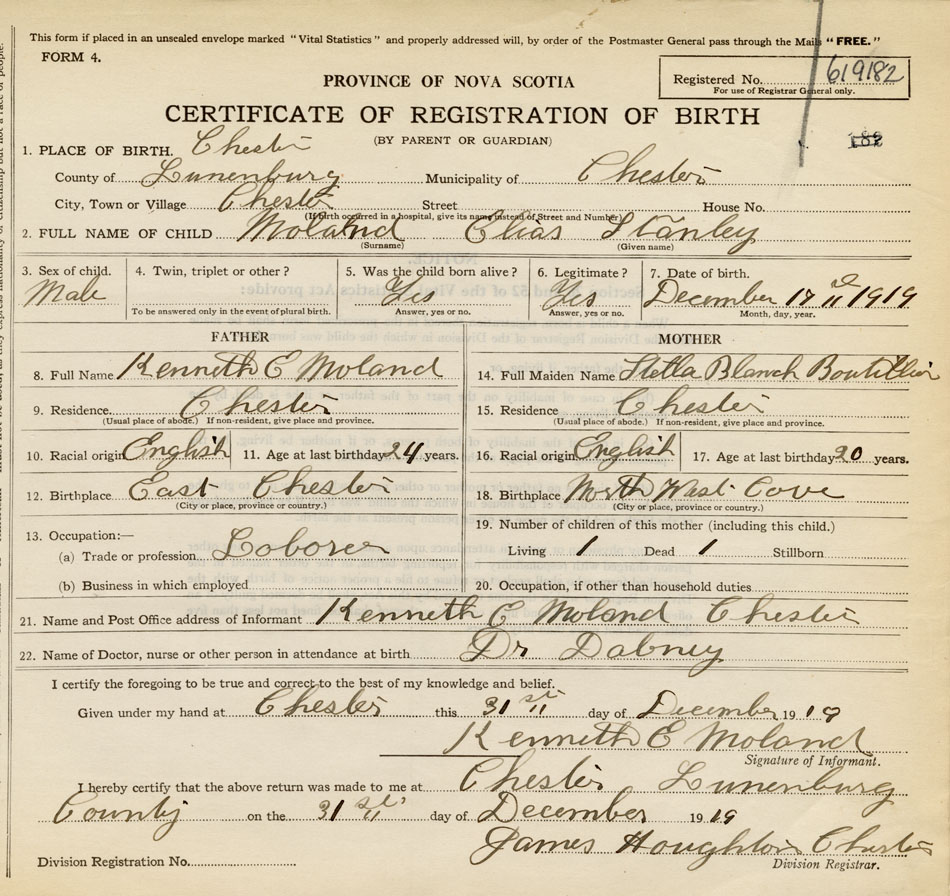 This form if placed in an unsealed envelope marked "Vital Statistics" and properly addressed will, by order of the Postmaster General pass through the Mails "FREE."
FORM 4.
Registered No. 619182
For use of Registrar General only.
PROVINCE OF NOVA SCOTIA
CERTIFICATE OF REGISTRATION OF BIRTH
182
(BY PARENT OR GUARDIAN)
1. PLACE OF BIRTH. Chester
County of Lunenburg Municipality of Chester
City, Town or Village Chester Street House No.
(If birth occurred in a hospital, give its name instead of Street and Number)
2. FULL NAME OF CHILD Moland Elias Stanley
(Surname) (Given name)
3. Sex of child. 4. Twin, triplet or other? 5. Was the child born alive? 6. Legitimate? 7. Date of birth.
Male Yes Yes December 1919
To be answered only in the event of plural birth. Answer, yes or no. Answer, yes or no. Month, day, year.
FATHER MOTHER
8. Full Name Kenneth E Moland 14. Full Maiden Name Stella Blanch Boutillier
9. Residence. Chester 15. Residence Chester
(Usual place of abode.) If non-resident, give place and province. (Usual place of abode.) If non-resident, give place and province.
10. Racial origin English 11. Age at last birthday 24 years. 16. Racial origin English 17. Age at last birthday 20 years.
12. Birthplace East Chester 18. Birthplace North West Cove
(City or place, province or country.) (City or place, province or country.)
13. Occupation:— 19. Number of children of this mother (including this child.)
(a) Trade or profession Loborer Living 1 Dead 1 Stillborn
(b) Business in which employed 20. Occupation, if other than household duties
21. Name and Post Office address of Informant Kenneth E Moland Chester
22. Name of Doctor, nurse or other person in attendance at birth Dr Dabney
I certify the foregoing to be true and correct to the best of my knowledge and belief.
Given under my hand at Chester this 31st day of December 1919
Kenneth E Moland
Signature of Informant.
I hereby certify that the above return was made to me at Chester Lunenburg
County on the 31st day of December 1919
James Houghton Chester
Division Registration No. Division Registrar.